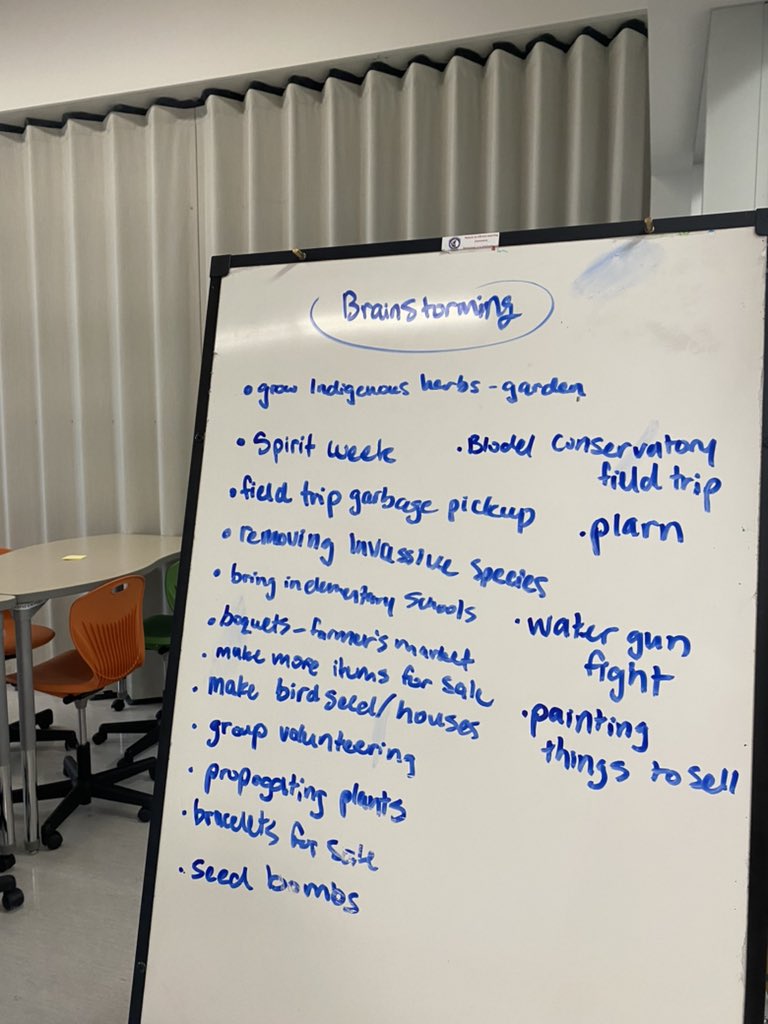 Brainstorming
• grow Indigenous herbs - garden
• Spirit week
• Blodel conservatory
field trip
• field trip garbage pickup
• plarn
• removing invassive species
• bring in elementary schools
• water gun
fight
• boquets - farmer's market
• make more items for sale
• make birdseed/houses
• painting
things to sell
• group volunteering
• propagating plants
• bracelets for sale
• seed bombs